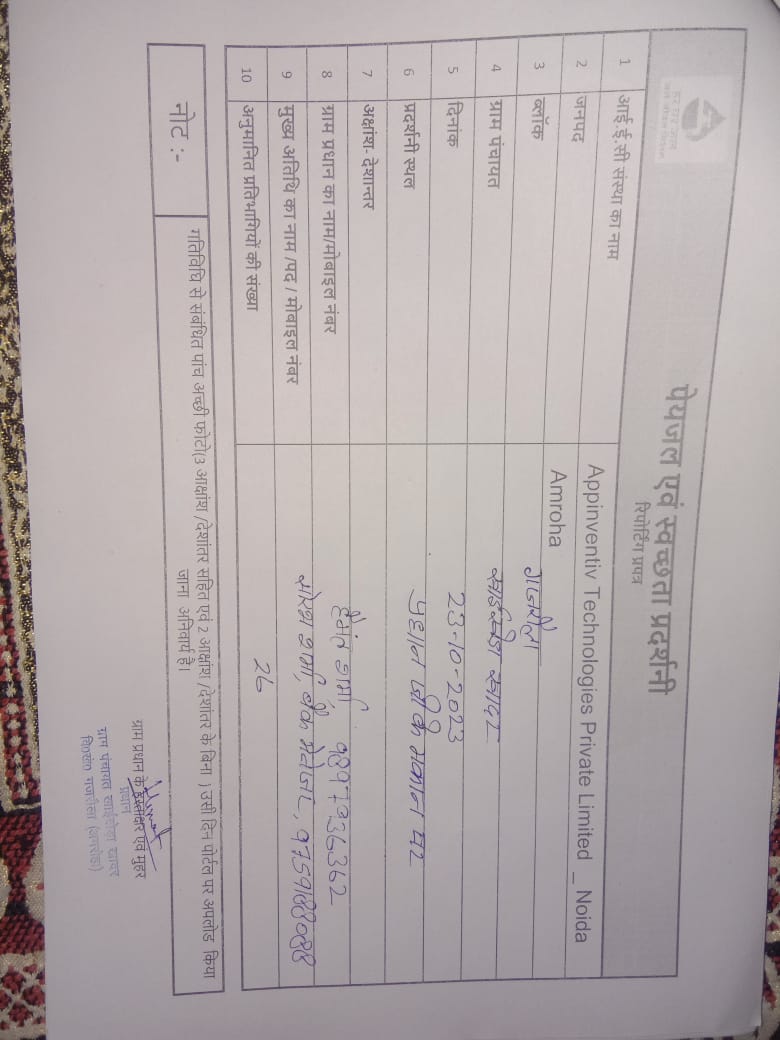 पेयजल एवं स्वच्छता प्रदर्शनी
रिपोर्टिंग प्रपत्र
1 आई.ई.सी संस्था का नाम Appinventiv Technologies Private Limited _ Noida
2 जनपद Amroha
3 ब्लॉक गजरौला
4 ग्राम पंचायत खादर
5 दिनांक 23-10-2023
6 प्रदर्शनी स्थल प्रधान जी के मकान पर
7 अक्षांश- देशान्तर
8 ग्राम प्रधान का नाम/मोबाइल नंबर हेमंत शर्मा,
9 मुख्य अतिथि का नाम /पद / मोबाइल नंबर शर्मा,
10 अनुमानित प्रतिभागियों की संख्या 26
नोट :-
गतिविधि से संबंधित पांच अच्छी फोटो(3 आक्षांश /देशांतर सहित एवं 2 आक्षांश /देशांतर के बिना ) उसी दिन पोर्टल पर अपलोड किया
जाना अनिवार्य है।
ग्राम प्रधान के हस्ताक्षर एवं मुहर
प्रधान
ग्राम पंचायत खादर